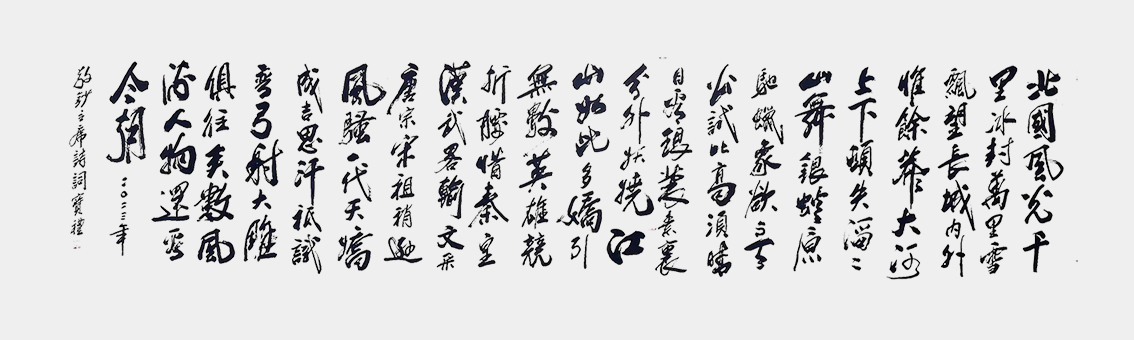 北國風光千
里冰封萬里雪
飄望長城内外
惟餘莽大河
上下頓失滔〻
山舞銀蛇原
馳蠟象欲与天
公試比高須晴
日看裝素裹
分外妖嬈江
山如此多嬌引
無數英雄競
折腰惜秦皇
漢武畧輸文采
唐宗宋祖稍遜
風騷一代天嬌
成吉思汗祗識
彎弓射大雕
俱往矣數風
流人物還看
今朝 二〇二三年
敬抄主席詩詞寶禮